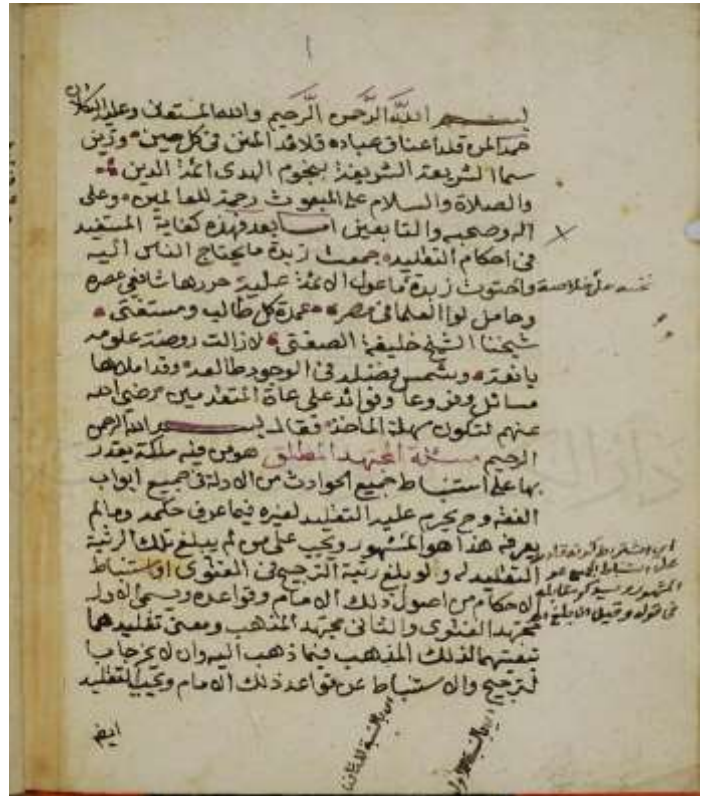 ١
بسم الله الرحمن الرحيم والله المستعان وعليه التكلان
حمدا لمن قلد اعناق عباده قلائد المنن في كل حين وزين
سما الشريعة الشريفة بنجوم الهدى ائمة الدين
والصلاة والسلام على المبعوث رحمة للعالمين وعلى
اله وصحبه والتابعين اما بعد فهذه كفاية المستفيد
في احكام التقليد جمعت زبدة ما يحتاج الناس اليه
واحتوت زبدة ما عول الائمة عليه حررها شافعي عصره
وحامل لوا العلما في مصره عمدة كل طالب ومستفتي
شيخنا الشيخ خليفة الصفتي لا زالت روضة علومه
يانعة وشمس فضله في الوجود طالعة وقد املاها
مسائل وفروعا وفوائد على عادة المتقدمين رضي الله
عنهم لتكون سهلة الماخذ فقال بسم الله الرحمن
الرحيم مسئلة المجتهد المطلق هو من فيه ملكة يقدر
بها على استنباط جميع الحوادث من الادلة في جميع ابواب
الفقه وح يحرم عليه التقليد لغيره فيما عرف حكمه وما لم
يعرفه هذا هو المشهور ويجب على من لم يبلغ تلك الرتبة
التقليد له ولو بلغ رتبة الترجيح في الفتوى او استنباط
الاحكام من اصول ذلك الامام وقواعده ويسمى الاول
مجتهد الفتوى والثاني مجتهد المذهب ومعنى تقليدهما
تبعيتهما لذلك المذهب فيما ذهب اليه وان لا يخرجا با
لترجيح والاستنباط عن قواعد ذلك الامام ويجب التقليد
اي
على استنباط الجميع هو
المشهور وسيذكر مقابله
في قوله وقيل ان بلغ الخ
اي بالنسبة للاول
اي بالنسبة للثاني
ايض